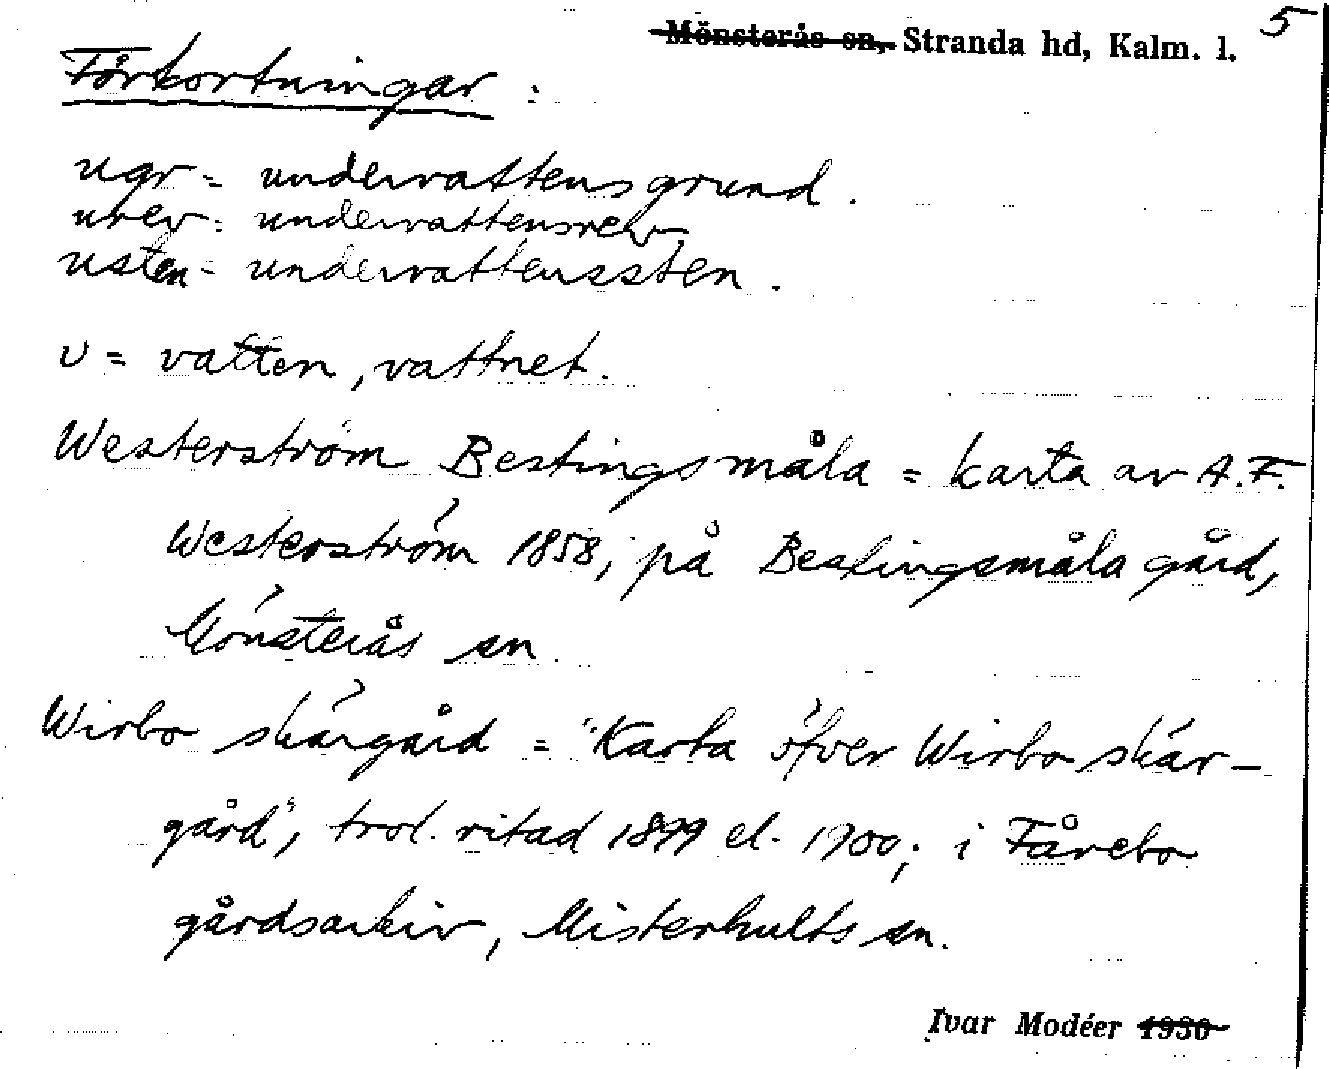 Mönsterås sn, Stranda hd, Kalm. l. 5
Förkortningar :
ugr = undervattensgrund.
urev = undervattensrev,
usten = undervattenssten.
v = vatten, vattnet.
Westerström Bestingsmåla = karta av A.F.
Westerström 1858; på Bestingsmåla gård,
Mönsterås sn.
Wirbo skärgård = "Karta öfver Wirbo skär-
gård", trol. ritad 1899 el. 1900; i Fårebo
gårdsarkiv, Misterhults sn.
Ivar Modéer 1930